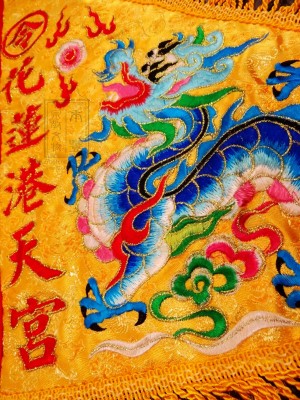 令
花蓮港天宮